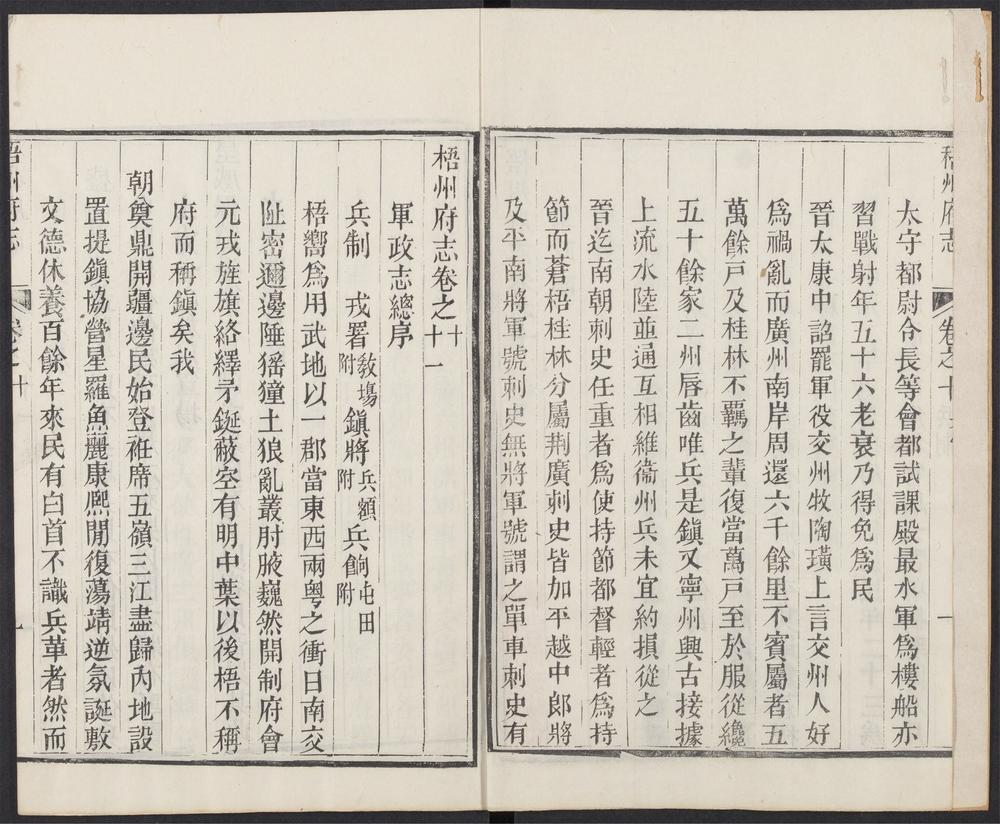 梧州府志
卷之十
一
太守都尉令長等會都試課殿最水軍爲樓船亦
習戰射年五十六老衰乃得免爲民
晉太康中詔罷軍役交州牧陶璜上言交州人好
爲禍亂而廣州南岸周還六千餘里不賓屬者五
萬餘戸及桂林不羈之輩復當萬戸至於服從纔
五十餘家二州唇齒唯兵是鎮又寧州興古接據
上流水陸並通互相維衞州兵未宜約損從之
晉迄南朝刺史任重者爲使持節都督輕者爲持
節而蒼梧桂林分屬荆廣刺史皆加平越中郎將
及平南將軍號刺史無將軍號謂之單車刺史有
梧州府志卷之十
十一
軍政志總序
兵制　戎署教場附鎮將兵額附兵餉屯田附
梧嚮爲用武地以一郡當東西兩粤之衝日南交
阯密邇邊陲猺獞土狼亂叢肘腋巍然開制府會
元戎旌旗絡繹矛鋋蔽空有明中葉以後梧不稱
府而稱鎮矣我
朝奠鼎開疆邊民始登袵席五嶺三江盡歸內地設
置提鎮協營星羅魚麗康熙閒復蕩靖逆氛誕敷
文德休養百餘年來民有白首不識兵革者然而
梧州府志
卷之十